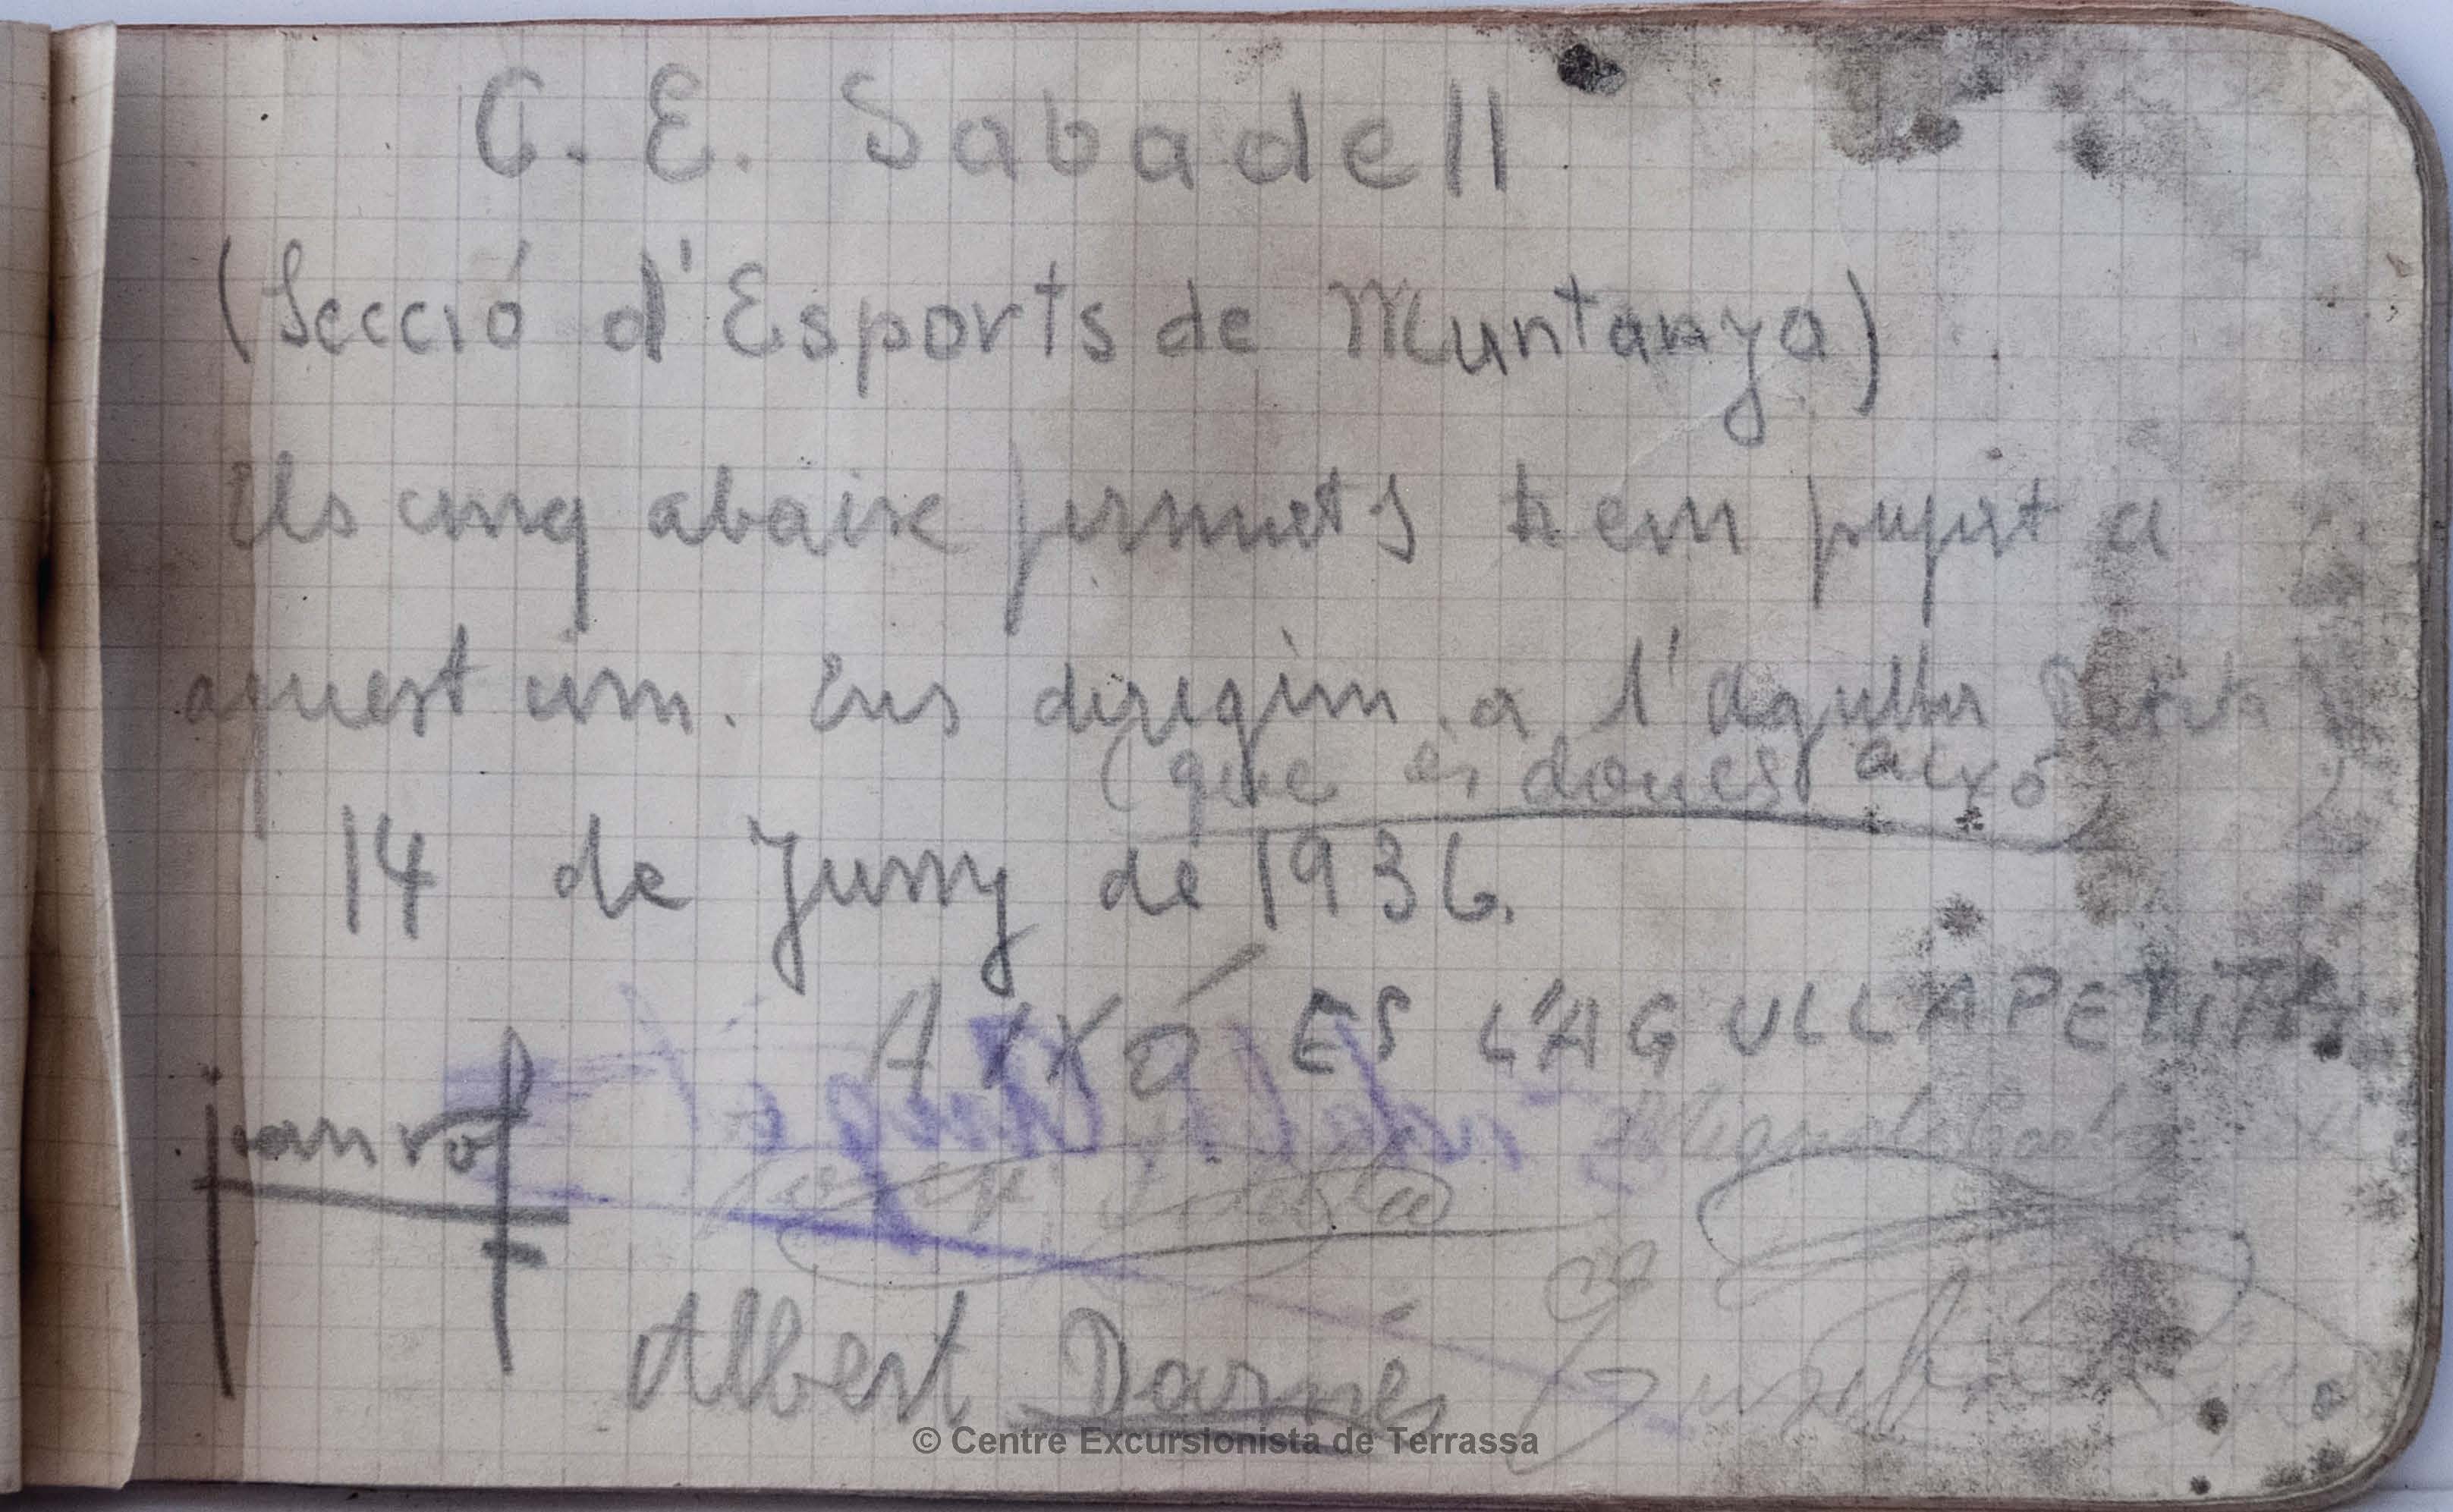 C. E. Sabadell
(Secció d'Esports de Muntanya)
Els cinq abaix firmats hem pujat a
aquest cim. Ens dirigim a l'Agulla Petita
(que és doncs això)
14 de Juny de 1936.
AIXÓ ES L'AGULLA PETITA
joan rof
Miquel
Josep
Albert Darnés
© Centre Excursionista de Terrassa